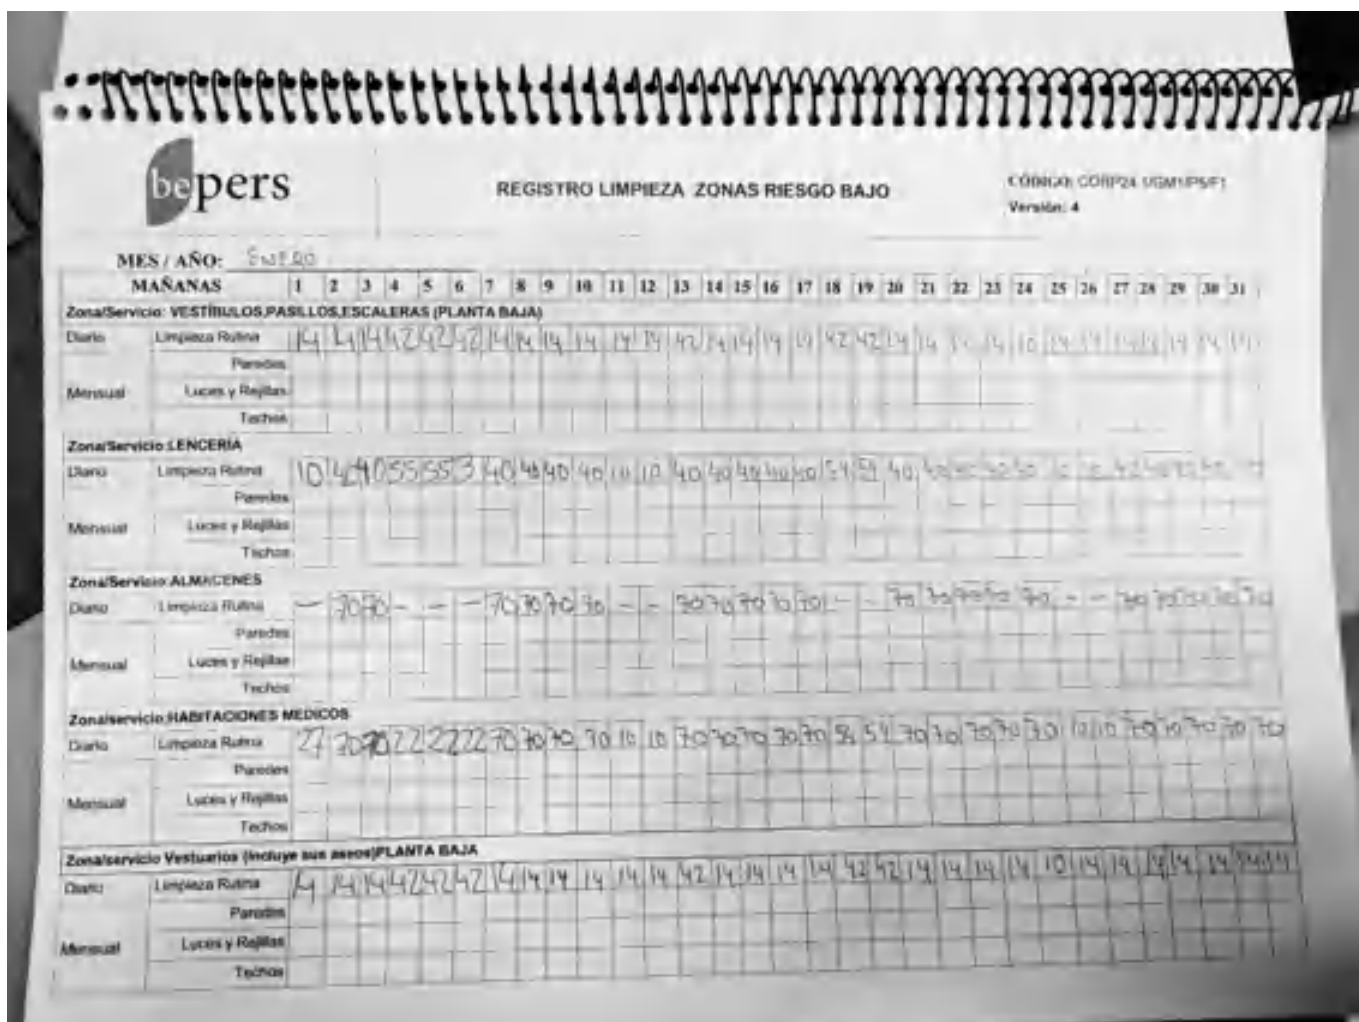 bepers
REGISTRO LIMPIEZA ZONAS RIESGO BAJO
CÓDIGO: CORP24
Versión: 4
MES / AÑO: ENERO
MAÑANAS 1 2 3 4 5 6 7 8 9 10 11 12 13 14 15 16 17 18 19 20 21 22 23 24 25 26 27 28 29 30 31
Zona/Servicio: VESTÍBULOS,PASILLOS,ESCALERAS (PLANTA BAJA)
Diario Limpieza Rutina 14 14 14 42 42 42 14 14 14 14 14 14 42 14 14 14 14 42 42 14 14 14 10 14 14 14 14 14 14
Paredes
Mensual Luces y Rejillas
Techos
Zona/Servicio:LENCERIA
Diario Limpieza Rutina 10 40 40 55 55 3 40 40 40 40 10 10 40 40 40 40 40 54 54 40
Paredes
Mensual Luces y Rejillas
Techos
Zona/Servicio:ALMACENES
Diario Limpieza Rutina - 70 70 - - - 70 70 70 70 - - 70 70 70 70 70 - - 70 70 70 70 70 - - 70 70 70 70 70
Paredes
Mensual Luces y Rejillas
Techos
Zona/servicio:HABITACIONES MEDICOS
Diario Limpieza Rutina 27 70 70 22 22 22 70 70 70 70 10 10 70 70 70 70 70 54 54 70 70 70 70 70 10 10 70 70 70 70 70
Paredes
Mensual Luces y Rejillas
Techos
Zona/servicio Vestuarios (incluye sus aseos)PLANTA BAJA
Diario Limpieza Rutina 14 14 14 42 42 42 14 14 14 14 14 14 42 14 14 14 14 42 42 14 14 14 14 10 14 14 14 14 14 14 14
Paredes
Mensual Luces y Rejillas
Techos